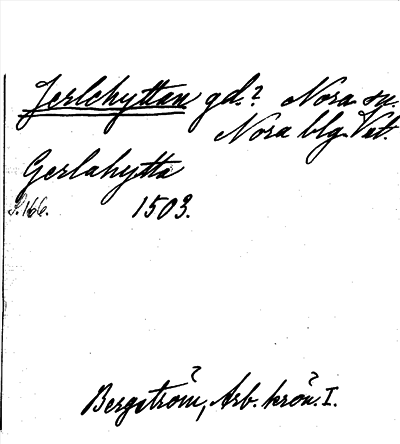 Jerlehyttan gd.? Nora sn.
Nora blg. Vstl.
Gerlahytta
S. 166. 1503.
Bergström, Arb. krön. I.